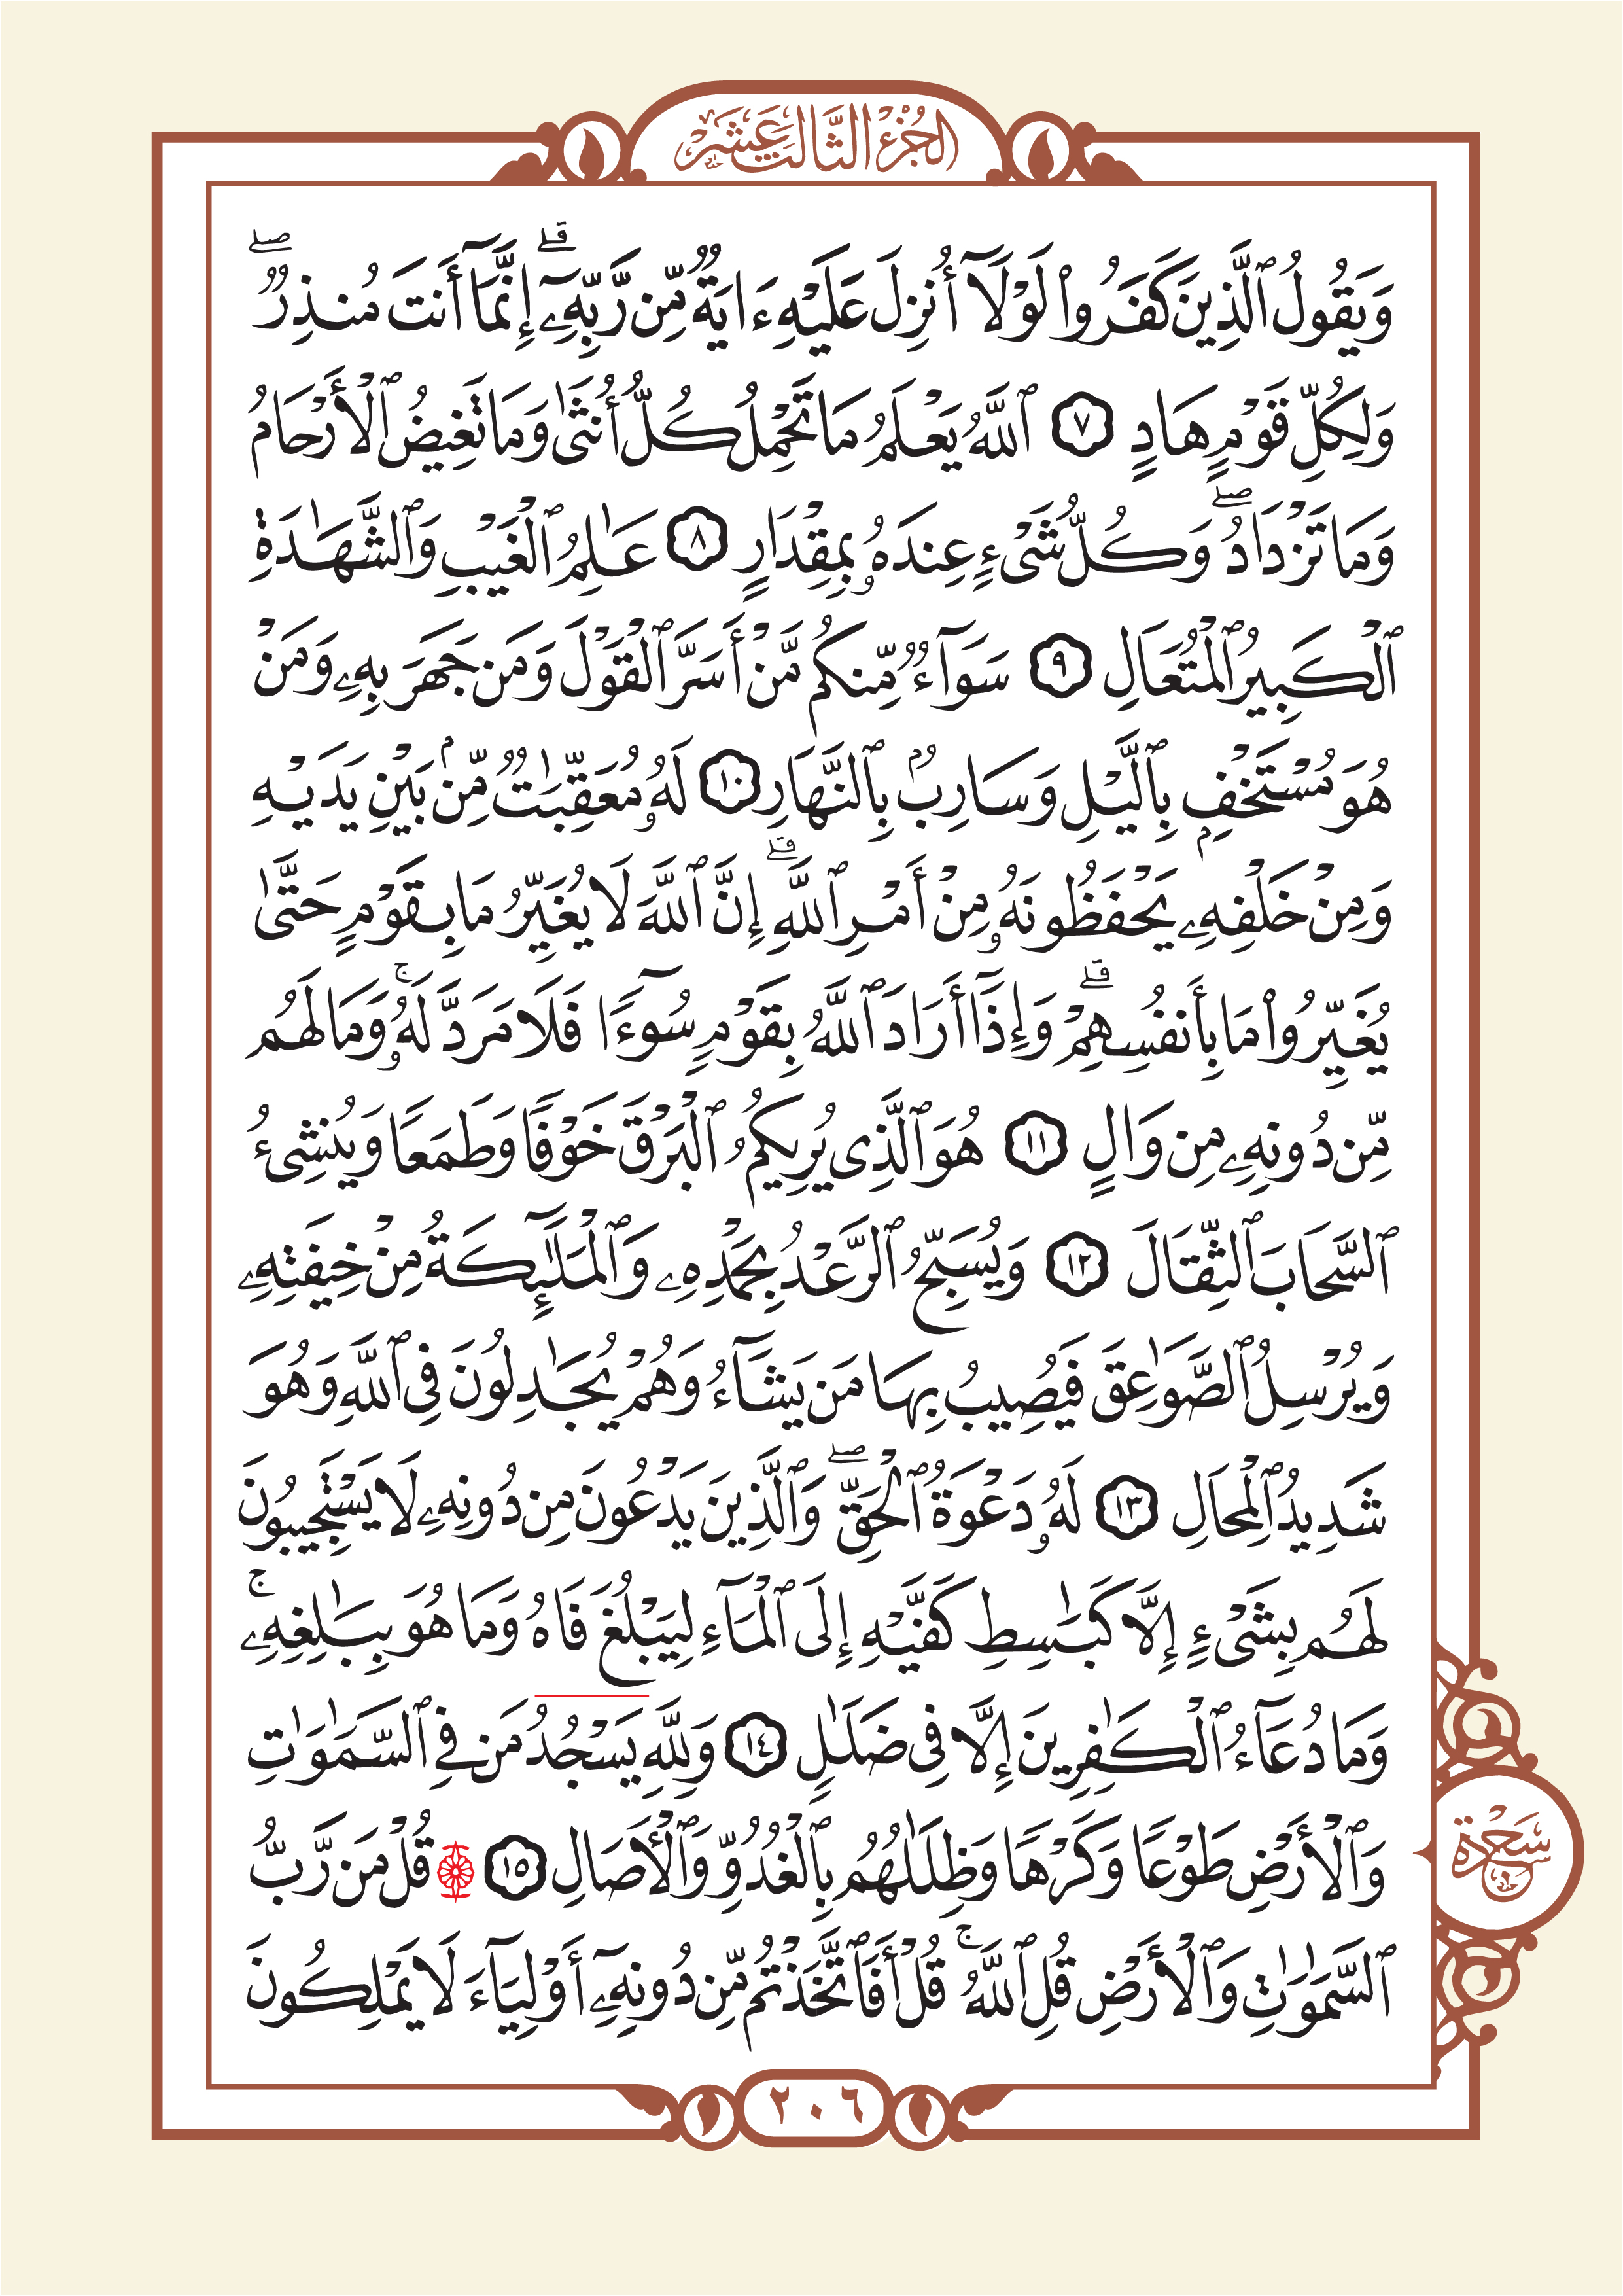 الجزء الثالث عشر
وَيَقُولُ ٱلَّذِينَ كَفَرُوا۟ لَوْلَآ أُنزِلَ عَلَيْهِ ءَايَةٌ مِّن رَّبِّهِۦٓ ۗ إِنَّمَآ أَنتَ مُنذِرٌ ۖ
وَلِكُلِّ قَوْمٍ هَادٍ ٧ ٱللَّهُ يَعْلَمُ مَا تَحْمِلُ كُلُّ أُنثَىٰ وَمَا تَغِيضُ ٱلْأَرْحَامُ
وَمَا تَزْدَادُ ۖ وَكُلُّ شَىْءٍ عِندَهُۥ بِمِقْدَارٍ ٨ عَـٰلِمُ ٱلْغَيْبِ وَٱلشَّهَـٰدَةِ
ٱلْكَبِيرُ ٱلْمُتَعَالِ ٩ سَوَآءٌ مِّنكُم مَّنْ أَسَرَّ ٱلْقَوْلَ وَمَن جَهَرَ بِهِۦ وَمَنْ
هُوَ مُسْتَخْفٍۭ بِٱلَّيْلِ وَسَارِبٌۢ بِٱلنَّهَارِ ١٠ لَهُۥ مُعَقِّبَـٰتٌ مِّنۢ بَيْنِ يَدَيْهِ
وَمِنْ خَلْفِهِۦ يَحْفَظُونَهُۥ مِنْ أَمْرِ ٱللَّهِ ۗ إِنَّ ٱللَّهَ لَا يُغَيِّرُ مَا بِقَوْمٍ حَتَّىٰ
يُغَيِّرُوا۟ مَا بِأَنفُسِهِمْ ۗ وَإِذَآ أَرَادَ ٱللَّهُ بِقَوْمٍ سُوٓءًا فَلَا مَرَدَّ لَهُۥ ۚ وَمَا لَهُم
مِّن دُونِهِۦ مِن وَالٍ ١١ هُوَ ٱلَّذِى يُرِيكُمُ ٱلْبَرْقَ خَوْفًا وَطَمَعًا وَيُنشِئُ
ٱلسَّحَابَ ٱلثِّقَالَ ١٢ وَيُسَبِّحُ ٱلرَّعْدُ بِحَمْدِهِۦ وَٱلْمَلَـٰٓئِكَةُ مِنْ خِيفَتِهِۦ
وَيُرْسِلُ ٱلصَّوَٰعِقَ فَيُصِيبُ بِهَا مَن يَشَآءُ وَهُمْ يُجَـٰدِلُونَ فِى ٱللَّهِ وَهُوَ
شَدِيدُ ٱلْمِحَالِ ١٣ لَهُۥ دَعْوَةُ ٱلْحَقِّ ۖ وَٱلَّذِينَ يَدْعُونَ مِن دُونِهِۦ لَا يَسْتَجِيبُونَ
لَهُم بِشَىْءٍ إِلَّا كَبَـٰسِطِ كَفَّيْهِ إِلَى ٱلْمَآءِ لِيَبْلُغَ فَاهُ وَمَا هُوَ بِبَـٰلِغِهِۦ ۚ
وَمَا دُعَآءُ ٱلْكَـٰفِرِينَ إِلَّا فِى ضَلَـٰلٍ ١٤ وَلِلَّهِ يَسْجُدُ مَن فِى ٱلسَّمَـٰوَٰتِ
وَٱلْأَرْضِ طَوْعًا وَكَرْهًا وَظِلَـٰلُهُم بِٱلْغُدُوِّ وَٱلْـَٔاصَالِ ١٥ قُلْ مَن رَّبُّ
سجدة
ٱلسَّمَـٰوَٰتِ وَٱلْأَرْضِ قُلِ ٱللَّهُ ۚ قُلْ أَفَٱتَّخَذْتُم مِّن دُونِهِۦٓ أَوْلِيَآءَ لَا يَمْلِكُونَ
٢٠٦